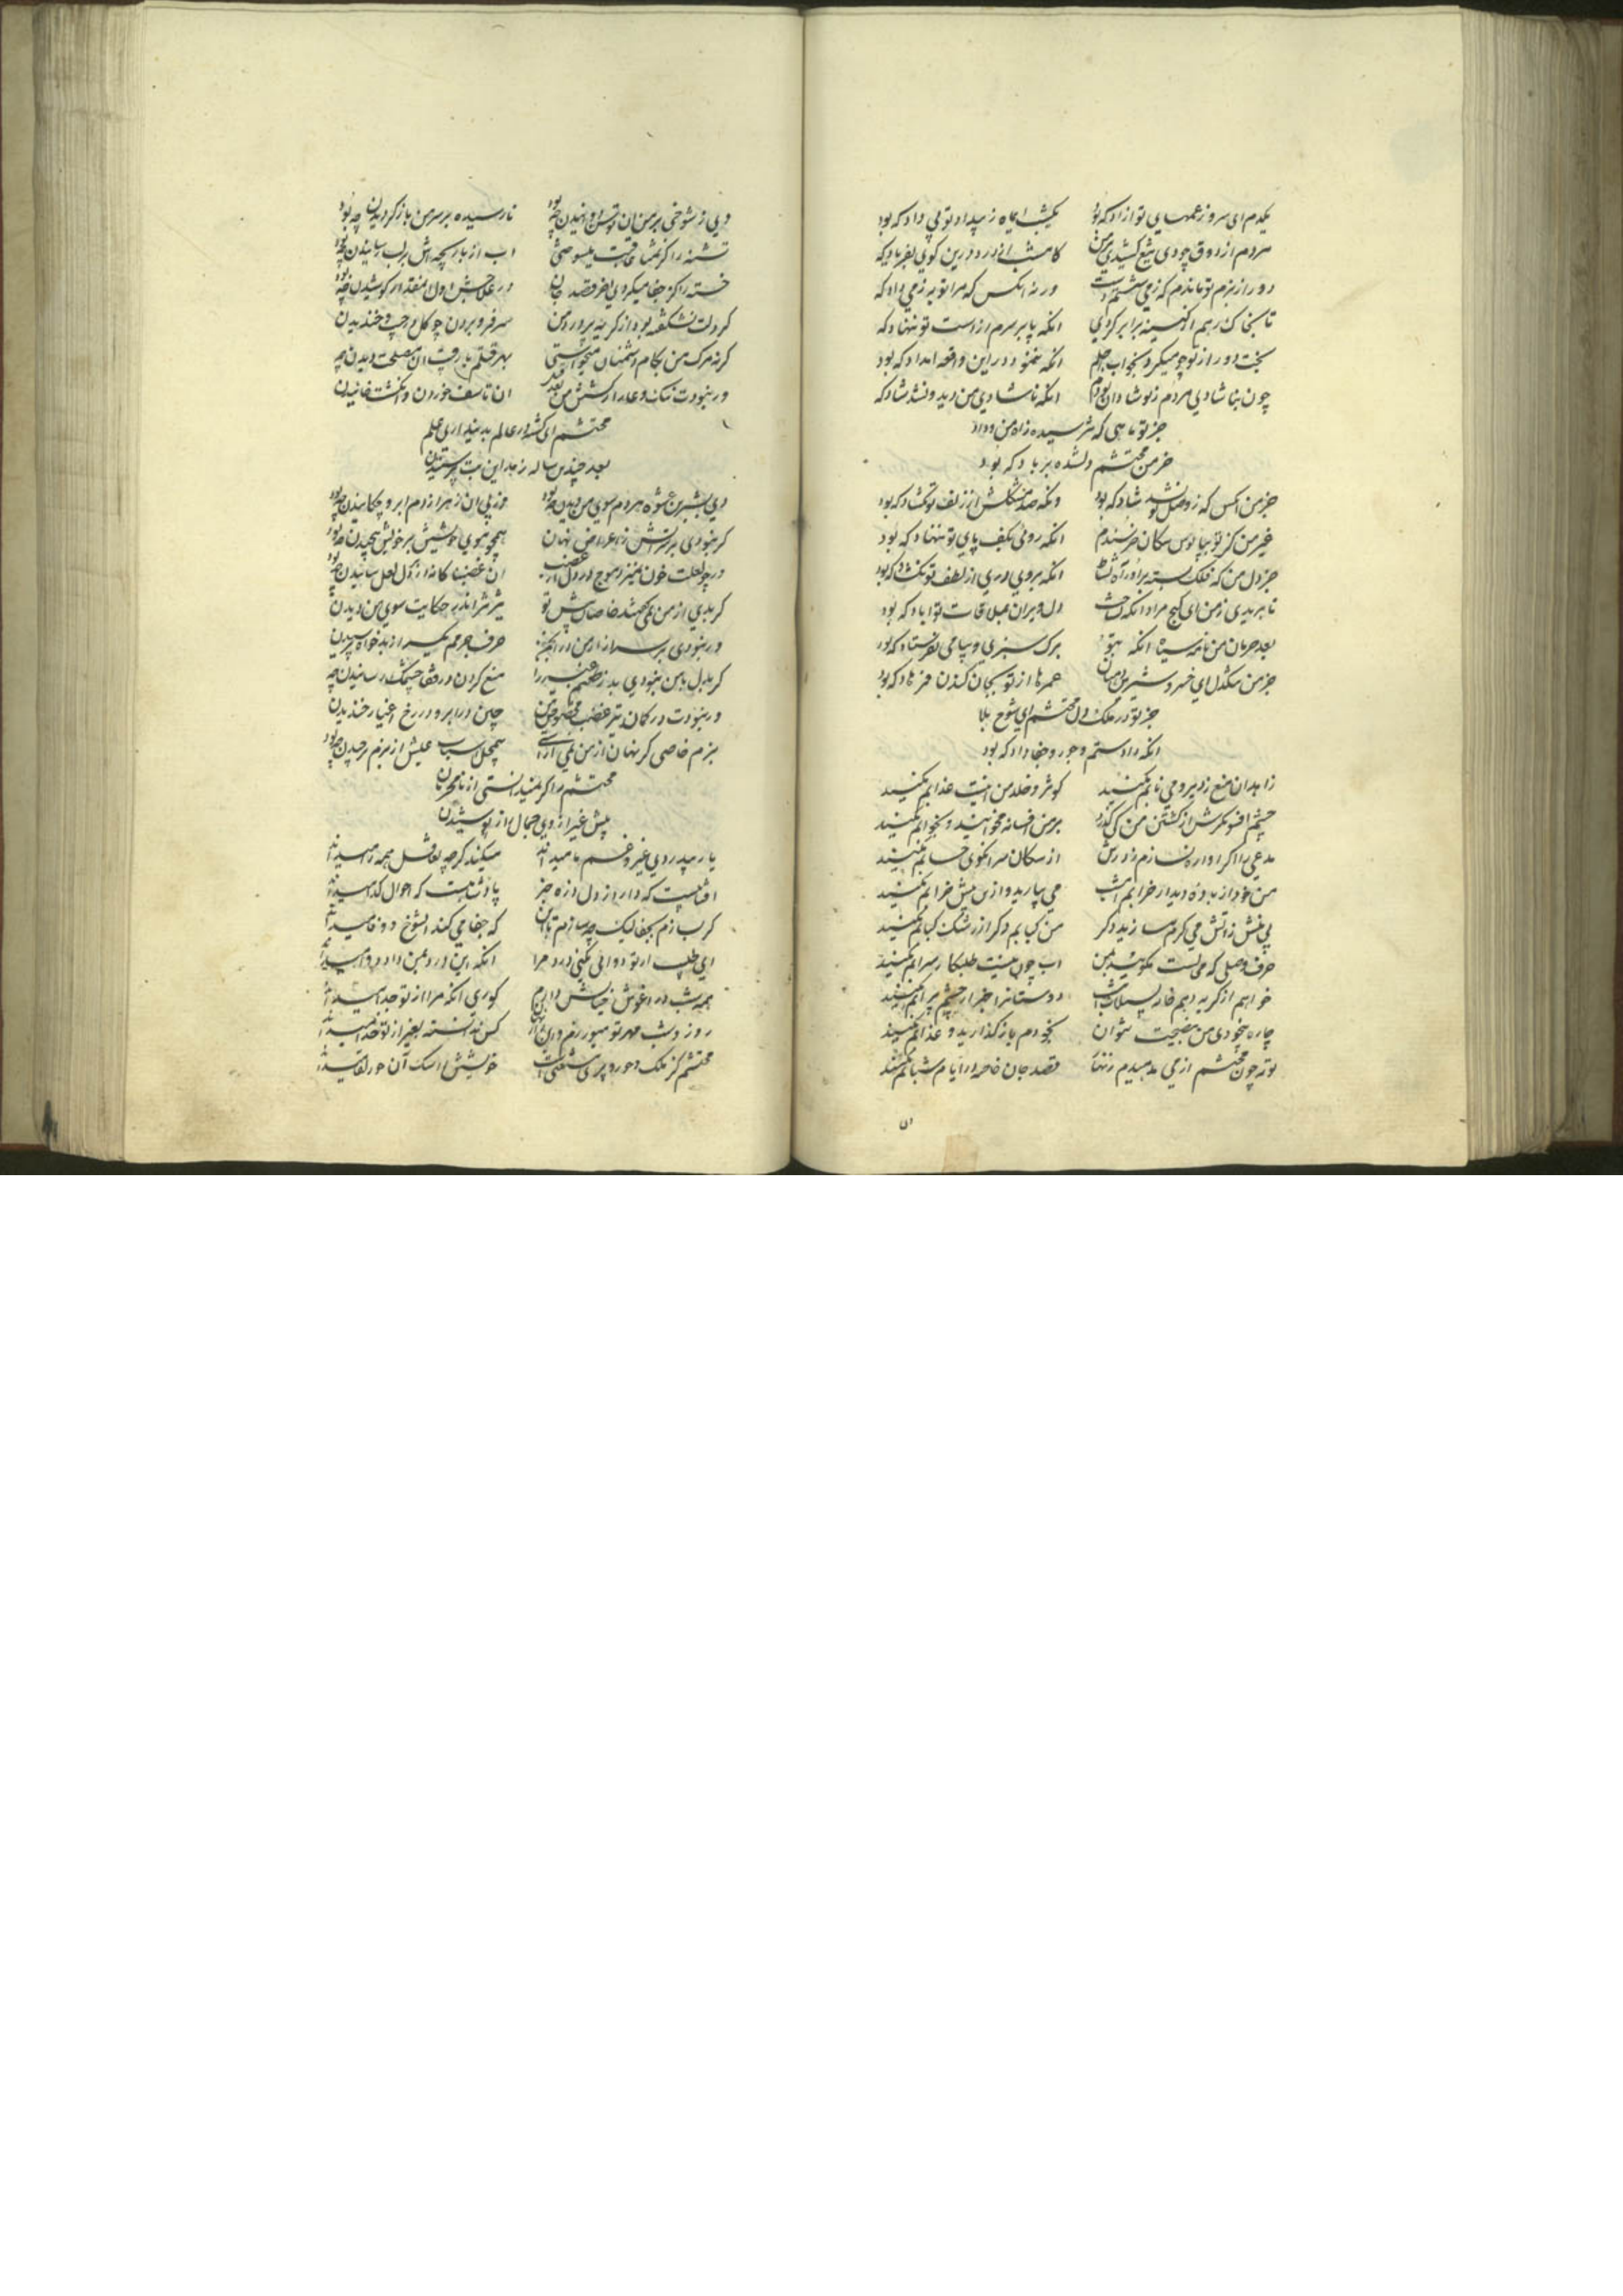 یکدم ای سرو ز غمهای تو ازاد که بود یکشب ایماه ز بیداد تو بی داد که بود
مردم از ذوق چو دی تیغ کشیدی بر من کامشب از درد درین کوی بفریاد که
دور از بزم تو ماندم که ز می شستم دست ورنه انکس که مرا توبه ز می داد که
تا بخاک رهم از کینه برابر کردی انکه پا بر سرم از دست تو ننهاد که
بخت دور از تو چو میکرد بخواب اجلم انکه ننمود درین واقعه امداد که بود
چون بناشادی مردم ز تو شادان بودم انکه ناشادی من دید و نشد شاد که
جز تو ماهی که نترسیده ز اه من و داد
خرمن محتشم دلشده بر باد که بود
جز من انکس که ز وصل تو نشد شاد که بود وانکه صد مشکلش از زلف تو نگشاد که بود
غیر من کز تو بپابوس سکان خرسندم انکه روئی بکف پای تو ننهاد که بود
جز دل من که فلک بسته برو راه نشاط انکه بر وی دری از لطف تو نگشاد که بود
تا بریدی ز من ای کنج مراد انکه نساخت دل ویران بملاقات تو اباد که بود
بعد حرمان من نامه سیاه انکه بتو برک سبزی و پیامی نفرستاد که بود
جز من سنگدل ای خسرو شیرین دهنان عمرها از تو بجان کندن فرهاد که بود
جز تو در ملک دل محتشم ای شوخ بلا
انکه داد ستم و جور و جفا داد که بود
زاهدان منع ز دیر و می نابم مکنید کوثر و خلد من اینست عذابم مکنید
چشم افسونگرش از کشتن من کی گذرد بر من افسانه مخوانید و بخوابم مکنید
مدعی را اگر اواره نسازم ز درش از سکان سر انکوی حسابم مکنید
من خود از باده دیدار خرابم امشب می بیارید وازین بیش خرابم مکنید
بی منش ز اتش می گرم مسازید دگر من کبابم دگر از رشک کبابم مکنید
حرف وصلی که محالست مگوئید بمن اب چون نیست طلبکار سرابم مکنید
خواهم از گریه دهم خانه بسیلاب امشب دوستانرا خبر از چشم پر ابم مکنید
چاره بیخودی من بنصیحت نتوان بخودم باز گذارید و عذابم مکنید
توبه چون محتشم از می مدهیدم زنهار قصد جان خاصه در ایام شبابم مکنید
دی ز شوخی بر من ان توسن دوانیدن چه بود نارسیده بر سر من باز گردیدن چه بود
تشنه را کز تمنا عاقبت میسوختی اب از بازیچه اش بر لب رسانیدن چه بود
خسته را کز جفا میکردی اخر قصد جان در علاجش اول انمقدار کوشیدن چه بود
گر دلت نشکفته بود از گریه پر درد من سر فرو بردن چو گل در جیب و خندیدن
گر نه مرک من بکام دشمنان میخواستی بهر قتلم با رقیب ان مصلحت دیدن چه
ور نبودت ننک و عار از کشتن من بعد قتل ان تاسف خوردن و انگشت خائیدن
محتشم ای گشته در عالم بدینداری علم
بعد چندین ساله زهد این بت پرستیدن
دی بشیرین عشوه هر دم سوی من دیدن چه بود وز پی ان زهر از دم ابرو چکانیدن چه بود
گر نبودی بر سر اتش ز اعراض نهان همچو موی خویشتن بر خویش پیچیدن چه بود
در چو لعلت خون نمیزد موج در دل از غضب ان غضبناکانه دندان لعل سائیدن چه بود
گر بدی از من نمی گفتند خاصان پیش تو تیز تیز اندر حکایت سوی من دیدن
ور نبودی بر سر ازار من در انجمن حرف جرمم یکسر از بدخواه پرسیدن
گر بدل با من نبودی بد ز خشمم غیر را منع کردن وز قفا چشمک رسانیدن چه
ور نبودت در کمان تیر غضب مخصوص من چین در ابرو در رخ اغیار خندیدن
بزم خاصی گر نهان از من نمی اراستی بیمحل اسباب عیش از بزم برچیدن چه بود
محتشم را گر نمیدانستی از نامحرمان
پیش غیر از وی جمال از ناز پوشیدن
یار بیدردی غیر و غم ما میداند میکند گرچه تغافل همه را میداند
افتابیست که دارد ز دل ذره خبر پادشاهیست که احوال گدا میداند
گر بسازم بجفا لیک چه سازم با این که جفا می کند انشوخ و وفا میداند
ای طبیب ار تو دوائی نکنی درد مرا انکه این درد بمن داد دوا میداند
همه شب در اغوش خیالش دارم کوری انکه مرا از تو جدا میداند
روز و شب مهر تو میورزم و این راز نهان کس ندانسته بغیر از تو خدا میداند
محتشم کز ملک و حور و پری مستغنی است خویش را سک آن حورلقا میداند